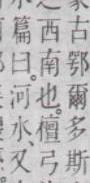 蒙古鄂爾多斯
之西南也。檀弓
篇曰。河水、又